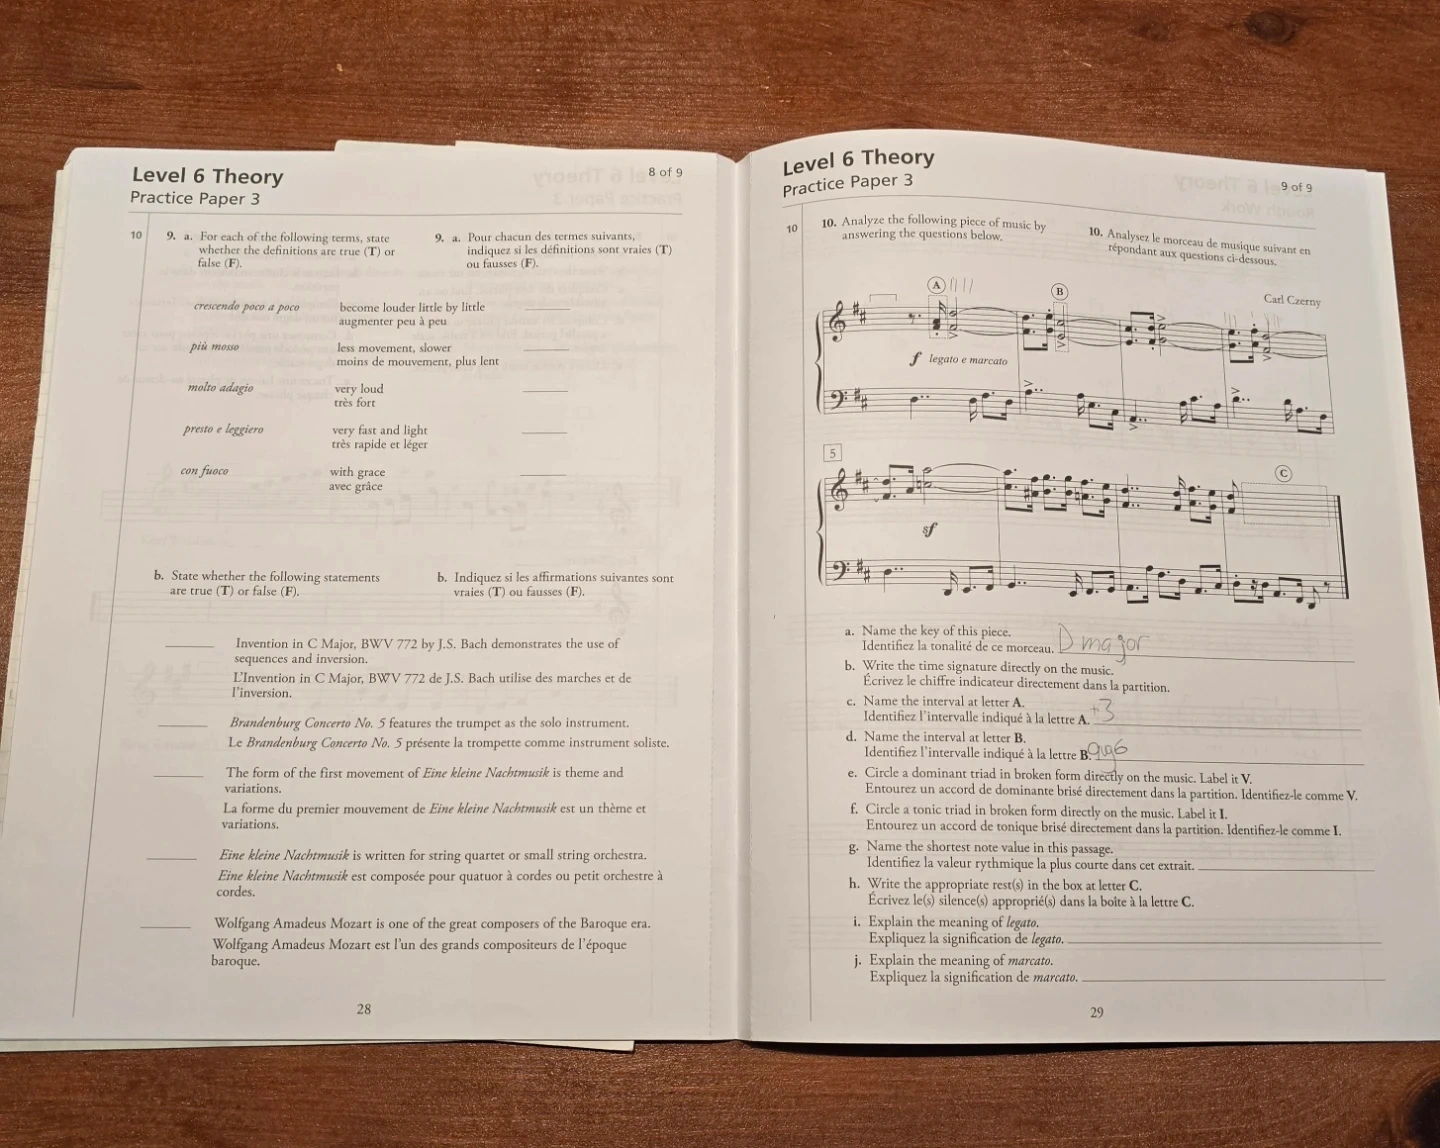 Level 6 Theory
Practice Paper 3
8 of 9
10
9. a. For each of the following terms, state
whether the definitions are true (T) or
false (F).
9. a. Pour chacun des termes suivants,
indiquez si les définitions sont vraies (T)
ou fausses (F).
crescendo poco a poco
become louder little by little
augmenter peu à peu
più mosso
less movement, slower
moins de mouvement, plus lent
molto adagio
very loud
très fort
presto e leggiero
very fast and light
très rapide et léger
con fuoco
with grace
avec grâce
b. State whether the following statements
are true (T) or false (F).
b. Indiquez si les affirmations suivantes sont
vraies (T) ou fausses (F).
Invention in C Major, BWV 772 by J.S. Bach demonstrates the use of
sequences and inversion.
L'Invention in C Major, BWV 772 de J.S. Bach utilise des marches et de
l'inversion.
Brandenburg Concerto No. 5 features the trumpet as the solo instrument.
Le Brandenburg Concerto No. 5 présente la trompette comme instrument soliste.
The form of the first movement of Eine kleine Nachtmusik is theme and
variations.
La forme du premier mouvement de Eine kleine Nachtmusik est un thème et
variations.
Eine kleine Nachtmusik is written for string quartet or small string orchestra.
Eine kleine Nachtmusik est composée pour quatuor à cordes ou petit orchestre à
cordes.
Wolfgang Amadeus Mozart is one of the great composers of the Baroque era.
Wolfgang Amadeus Mozart est l'un des grands compositeurs de l'époque
baroque.
28
Level 6 Theory
Practice Paper 3
9 of 9
10
10. Analyze the following piece of music by
answering the questions below.
10. Analysez le morceau de musique suivant en
répondant aux questions ci-dessous.
Carl Czerny
A
B
f legato e marcato
5
C
sf
a. Name the key of this piece.
Identifiez la tonalité de ce morceau. D major
b. Write the time signature directly on the music.
Écrivez le chiffre indicateur directement dans la partition.
c. Name the interval at letter A.
Identifiez l'intervalle indiqué à la lettre A. +3
d. Name the interval at letter B.
Identifiez l'intervalle indiqué à la lettre B.
e. Circle a dominant triad in broken form directly on the music. Label it V.
Entourez un accord de dominante brisé directement dans la partition. Identifiez-le comme V.
f. Circle a tonic triad in broken form directly on the music. Label it I.
Entourez un accord de tonique brisé directement dans la partition. Identifiez-le comme I.
g. Name the shortest note value in this passage.
Identifiez la valeur rythmique la plus courte dans cet extrait.
h. Write the appropriate rest(s) in the box at letter C.
Écrivez le(s) silence(s) approprié(s) dans la boîte à la lettre C.
i. Explain the meaning of legato.
Expliquez la signification de legato.
j. Explain the meaning of marcato.
Expliquez la signification de marcato.
29